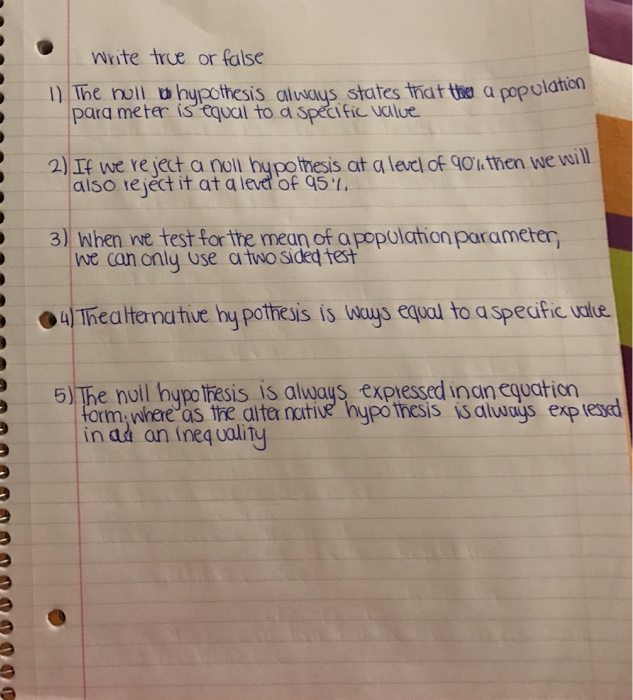 write true or false
1) The null hypothesis always states that a population
parameter is equal to a specific value
2) If we reject a null hypothesis at a level of 90% then we will
also reject it at a level of 95%.
3) When we test for the mean of a population parameter,
we can only use a two sided test
4) The alternative hypothesis is ways equal to a specific value
5) The null hypothesis is always expressed in an equation
form; where as the alternative hypothesis is always expressed
in an inequality